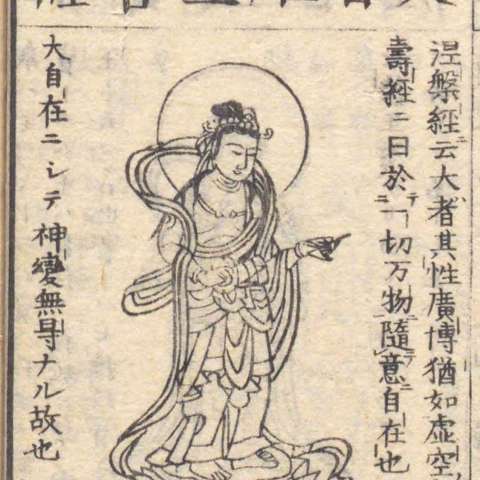 涅槃經云大者其性廣博猶如虚空
壽經ニ曰於一切万物隨意自在也
大自在ニシテ神變無㝵ナル故也